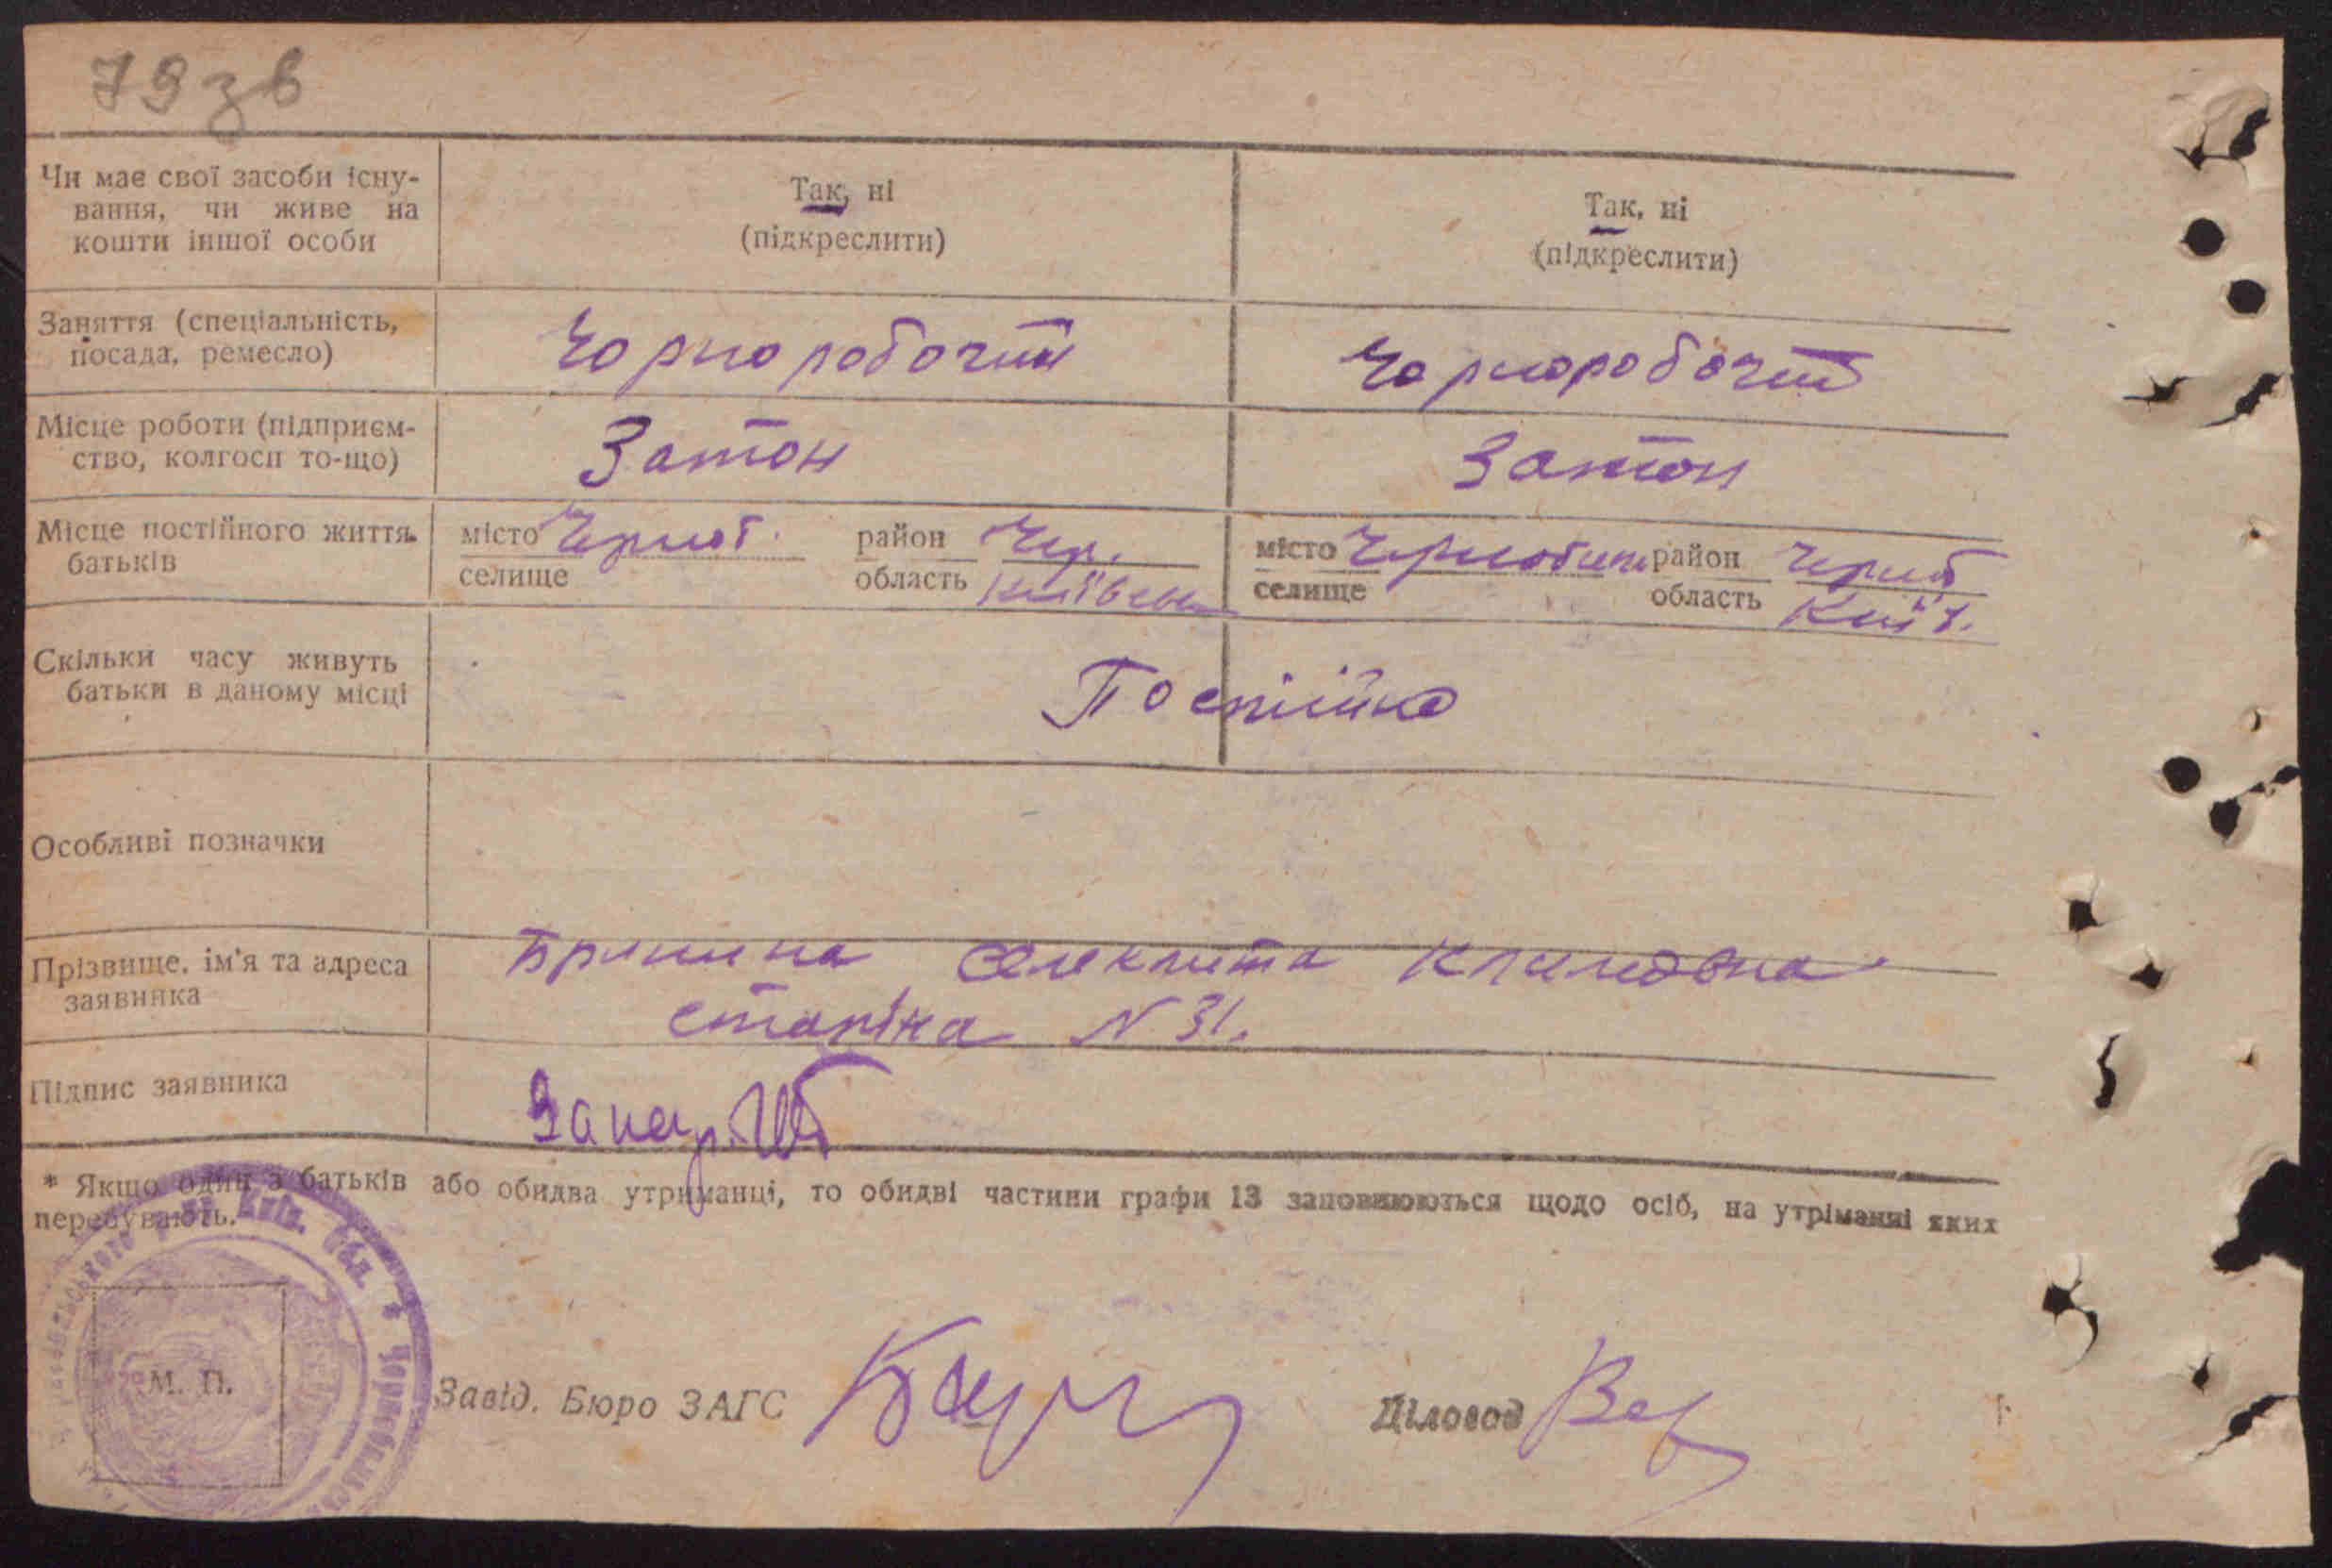 79 зв
Чи має свої засоби існу-
вання, чи живе на
кошти іншої особи
Так, ні
(підкреслити)
Так, ні
(підкреслити)
Заняття (спеціальність,
посада, ремесло)
Чорноробочий
Чорноробочий
Місце роботи (підприєм-
ство, колгосп то-що)
Затон
Затон
Місце постійного життя
батьків
місто Черноб. район Чер.
селище область Київськ
місто Чернобиль район Черноб
селище область Київ.
Скільки часу живуть
батьки в даному місці
Постійно
Особливі позначки
Прізвище, ім'я та адреса
заявника
Климовна
Сталіна N 31.
Підпис заявника
* Якщо один з батьків або обидва утриманці, то обидві частини графи 13 заповнюються щодо осіб, на утріманні яких
перебувають.
Київ. Обл. * Чорнобильськ
М. П.
Завід. Бюро ЗАГС
Діловод